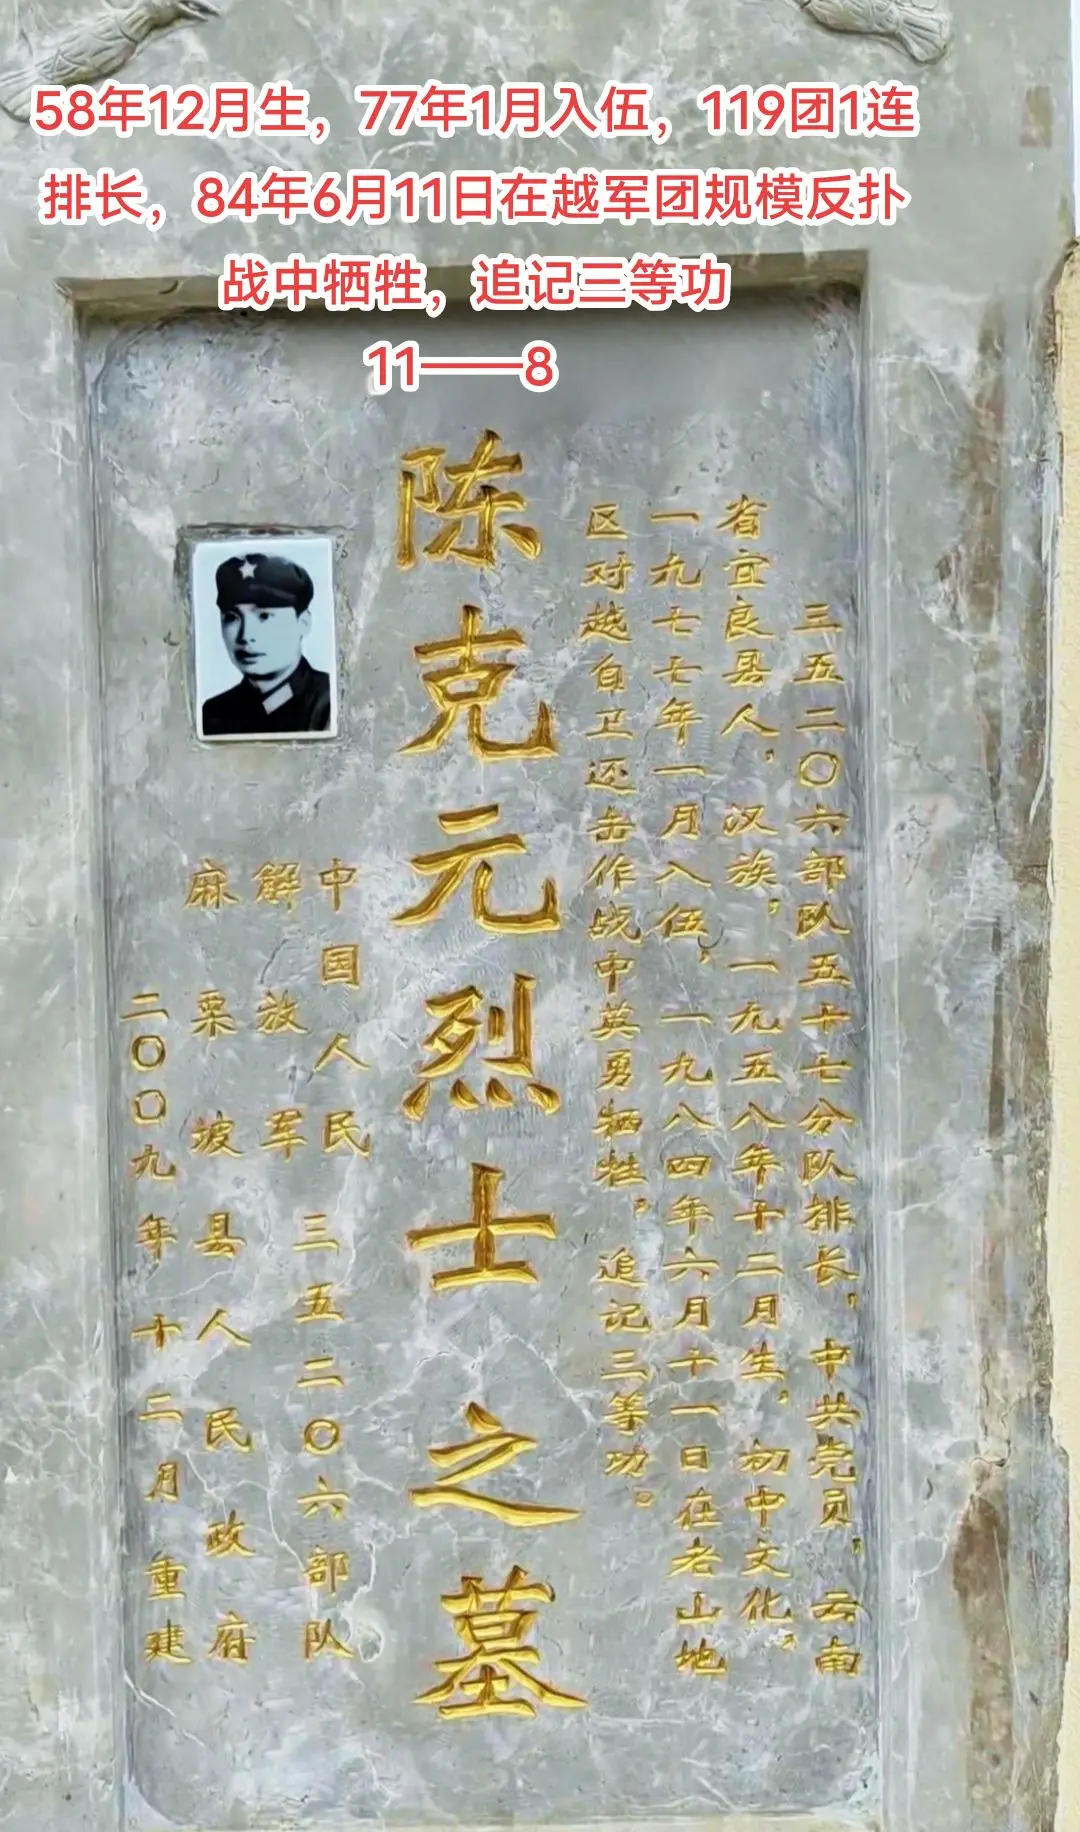 58年12月生，77年1月入伍，119团1连
排长，84年6月11日在越军团规模反扑
战中牺牲，追记三等功
11——8
三五二〇六部队五十七分队排长，中共党员，云南
省宜良县人，汉族，一九五八年十二月生，初中文化，
一九七七年一月入伍，一九八四年六月十一日在老山地
区对越自卫还击作战中英勇牺牲，追记三等功。
陈克元烈士之墓
中国人民三五二〇六部队
解放军
麻栗坡县人民政府
二〇〇九年十二月重建